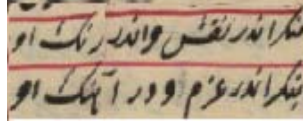 منگر اندر نقش و اندر رنگ او
بنگر اندر عزم و در آهنگ او